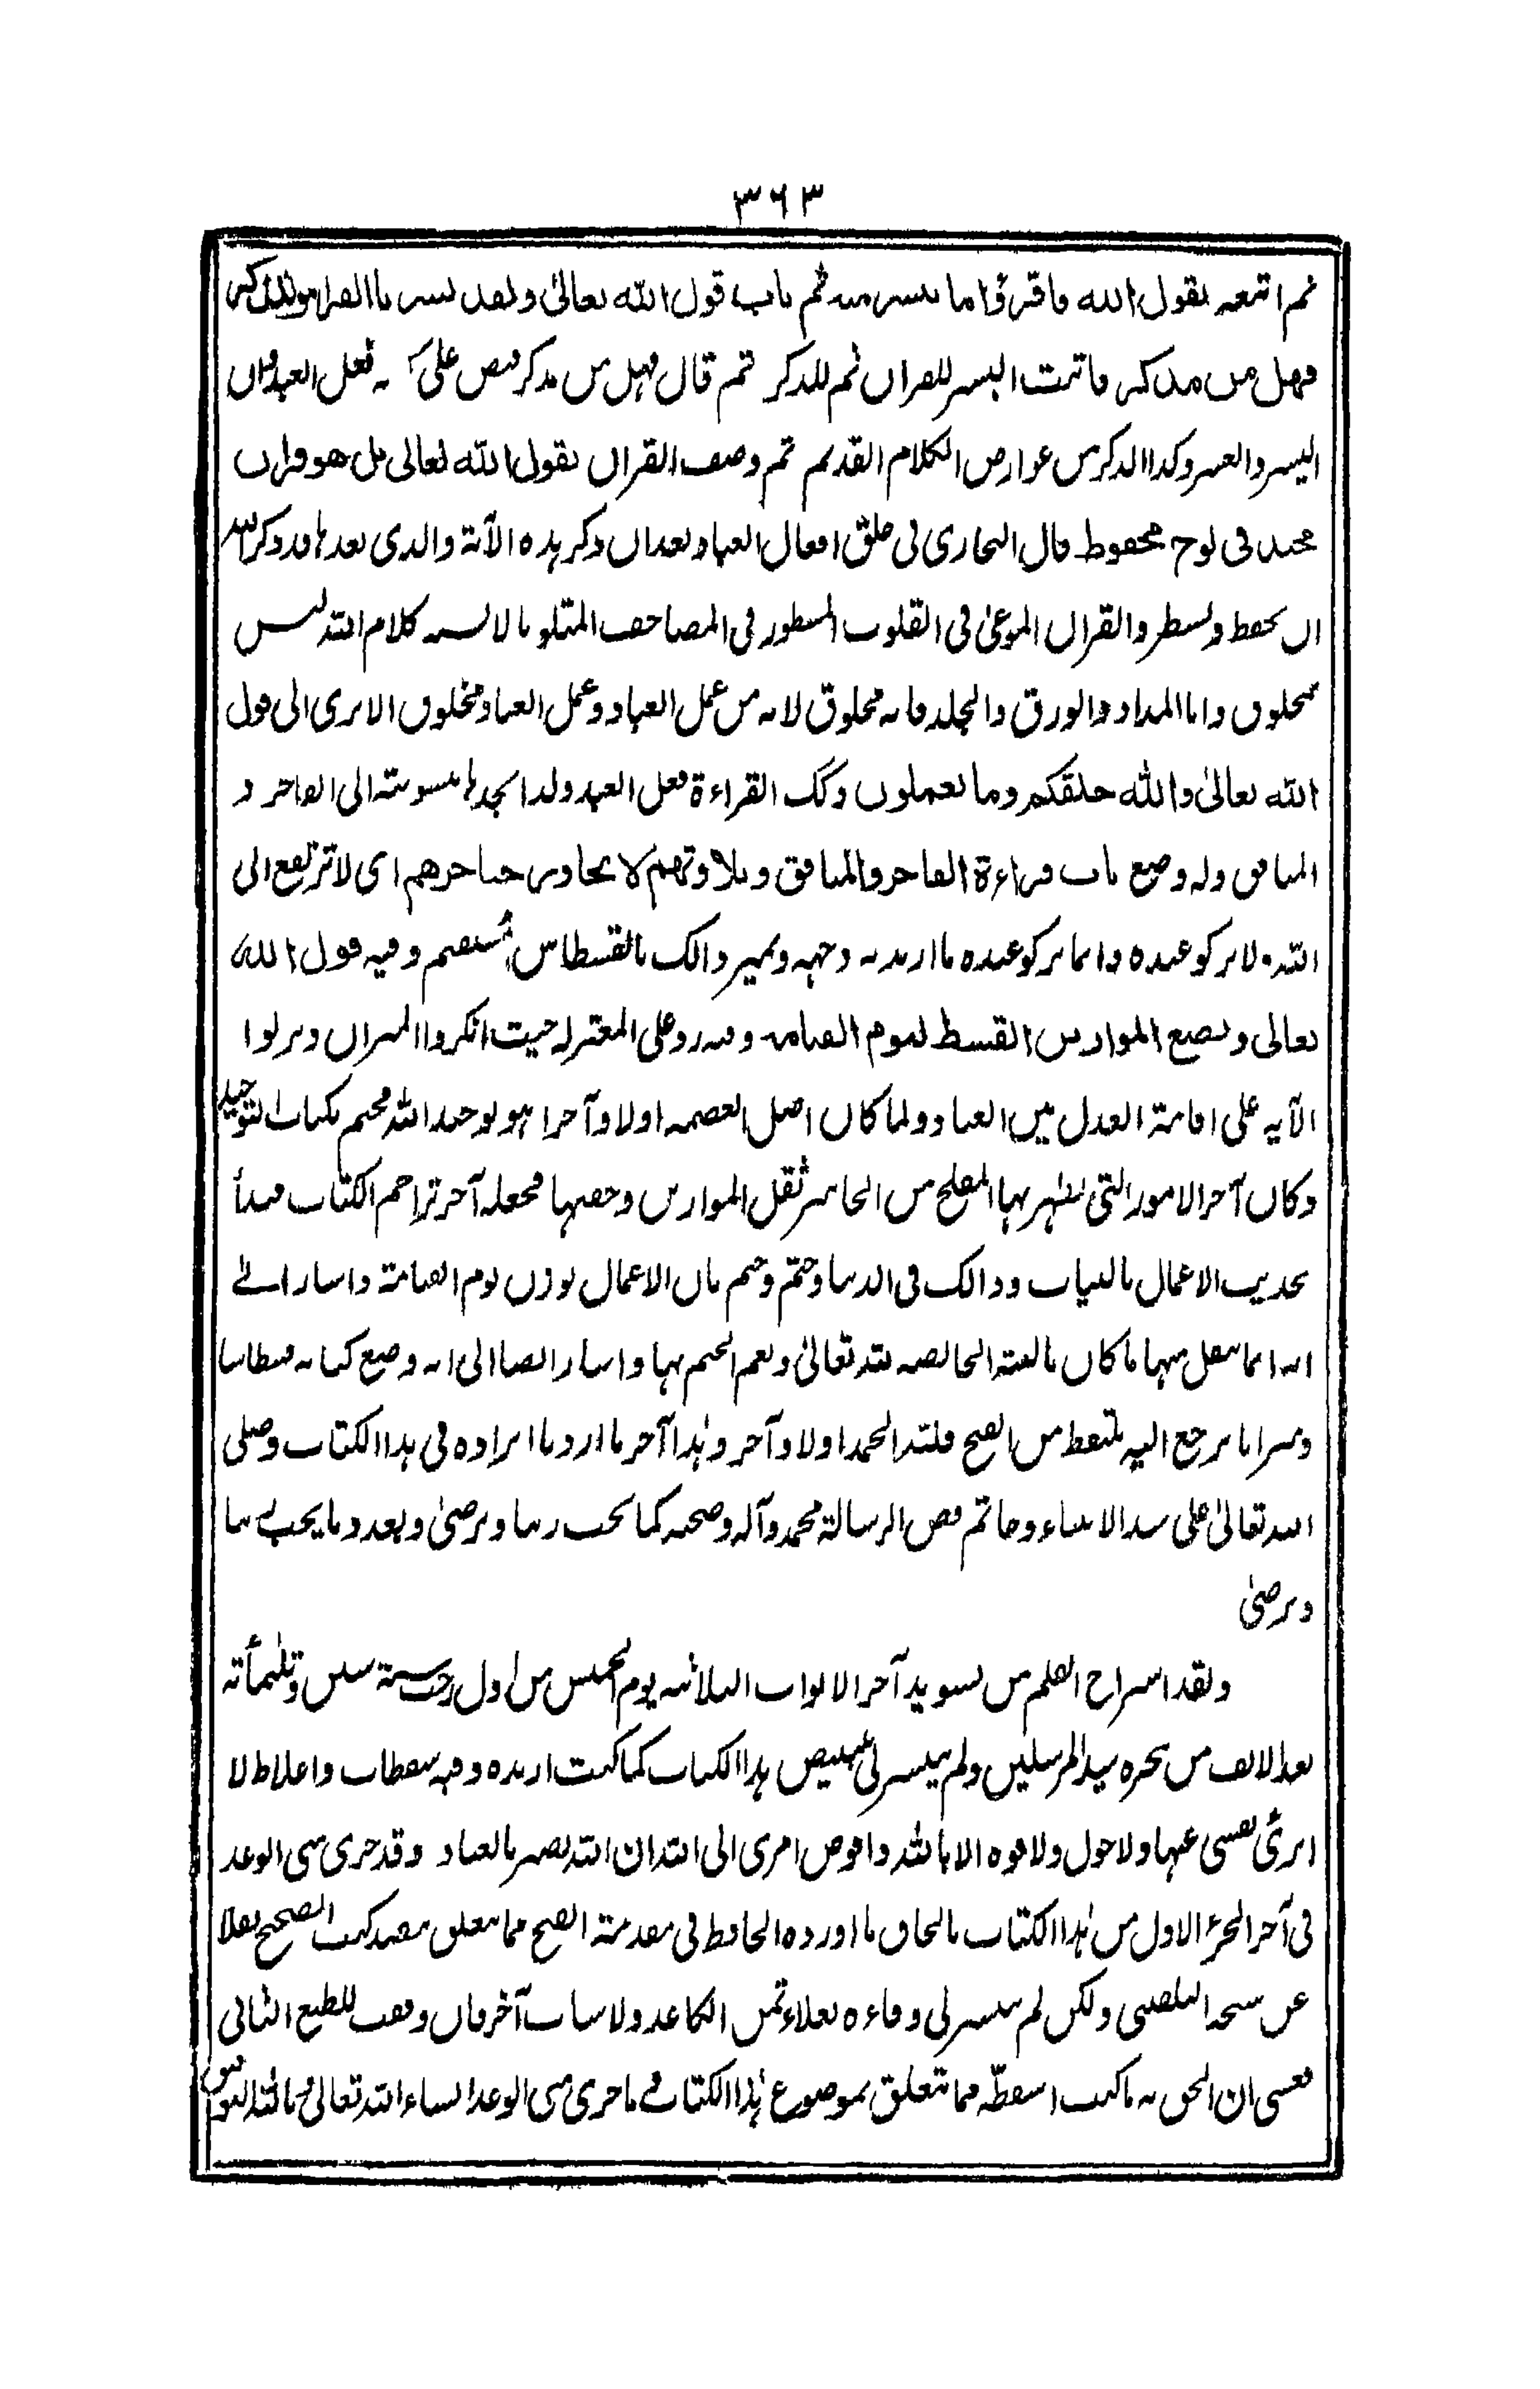 ٣٦٣
ثم اتبعه بقول الله فاقرؤا ما تيسر منه ثم باب قول الله تعالىٰ ولقد يسرنا القران للذكر
فهل من مدكر فاثبت اليسر للقران ثم للذكر ثم قال فهل من مدكر فنص على انه فعل العبد وان
اليسر والعسر وكذا الذكر من عوارض الكلام القديم ثم وصف القران بقول الله تعالى بل هو قران
مجيد فى لوح محفوظ قال البخارى فى خلق افعال العباد بعد ان ذكر هذه الآية والذى بعدها قد ذكر الله
ان يحفظ ويسطر والقران الموعىٰ فى القلوب المسطور فى المصاحف المتلو بالالسنه كلام الله ليس
بمخلوق واما المداد والورق والجلد فانه مخلوق لانه من عمل العباد وعمل العباد مخلوق الا ترى الى قول
الله تعالىٰ والله خلقكم وما تعملون وكك القراءة فعل العبد ولذا تجدها منسوبة الى الفاجر و
المنافق وله وضع باب قراءة الفاجر والمنافق وتلاوتهم لا تجاوز حناجرهم اى لا ترتفع الى
الله ولا يزكو عنده وانما يزكو عنده ما اريد به وجهه وتميز ذالك بالقسطاس المستقيم وفيه قول الله
تعالى ونضع الموازين القسط ليوم القيامه وفيه رد على المعتزله حيث انكروا الميزان ونزلوا
الآيه على اقامة العدل بين العباد ولما كان اصل العصمه اولا وآخرا هو توحيد الله فختم بكتاب التوحيد
وكان آخر الامور التى يظهر بها المفلح من الخاسر ثقل الموازين وخفتها فجعله آخر تراجم الكتاب فبدأ
بحديث الاعمال بالنيات وذالك فى الدنيا وختم بان الاعمال توزن يوم القيامة واشار الىٰ
انه انما يثقل منها ما كان بالنية الخالصه لله تعالىٰ ونعم الختم بها واشار ايضا الى انه وضع كتابه قسطاسا
وميزانا يرجع اليه ملتقط من الصحيح فلله الحمد اولا وآخر وهٰذا آخر ما اردنا ايراده فى هذا الكتاب وصلى
الله تعالىٰ على سيد الانبياء وخاتم فص الرسالة محمد وآله وصحبه كما يحب ربنا ويرضىٰ وبعدد ما يحب ربنا
ويرضىٰ
ولقد استراح القلم من تسويد آخر الابواب الثلاثه يوم الخميس من اول رجب سنة ستين وثلثمأته
بعد الالف من هجرة سيد المرسلين ولم يتيسر لى تبييض هذا الكتاب كما كنت اريده وفيه سقطات واغلاط لا
ابرئ نفسى عنها ولا حول ولا قوه الا بالله وافوض امرى الى الله ان الله بصير بالعباد وقد جرى منى الوعد
فى آخر الجزء الاول من هٰذا الكتاب بالحاق ما اورده الحافظ فى مقدمة الفتح مما يتعلق بقصد كتب الصحيح نقلا
عن شيخه البلقينى ولكن لم يتيسر لى وفاءه لغلاء ثمن الكاغد ولاسباب آخر فان وفقت للطبع الثانى
فعسى ان الحق به ما كنت اسقطه مما يتعلق بموضوع هٰذا الكتاب ما جرى منى الوعد انشاء الله تعالىٰ وبالله التوفيق